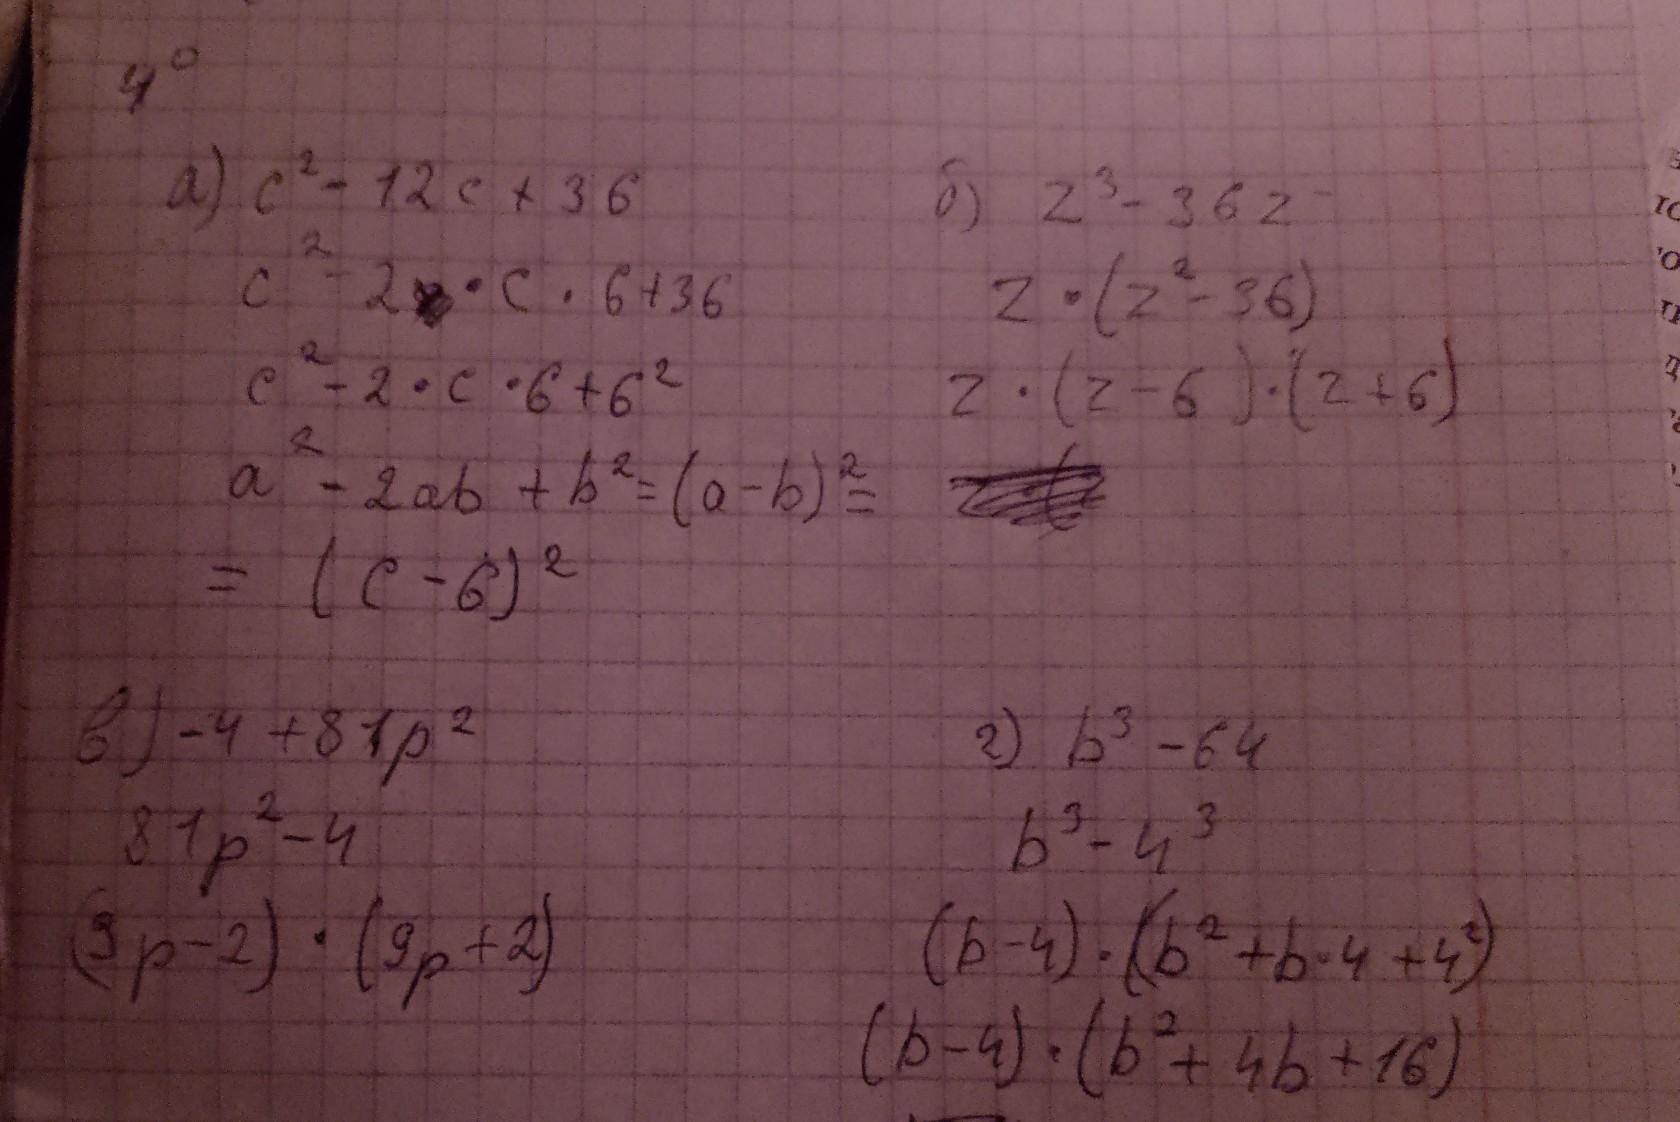 4°
а) c² - 12c + 36
c² - 2 · c · 6 + 36
c² - 2 · c · 6 + 6²
a² - 2ab + b² = (a - b)² =
= (c - 6)²
б) z³ - 36z -
z · (z² - 36)
z · (z - 6) · (z + 6)
в) -4 + 81p²
81p² - 4
(9p - 2) · (9p + 2)
г) b³ - 64
b³ - 4³
(b - 4) · (b² + b · 4 + 4²)
(b - 4) · (b² + 4b + 16)